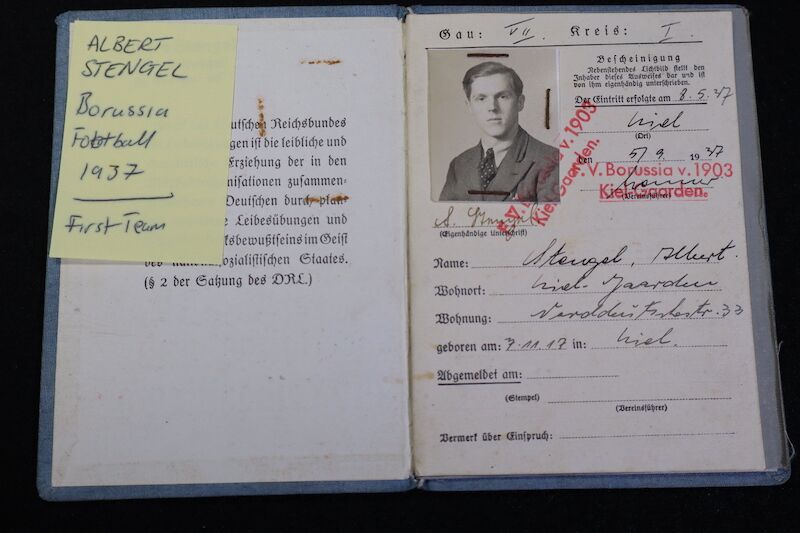 ALBERT
STENGEL
Borussia
Football
1937
First Team
deutschen Reichsbundes
gen ist die leibliche und
Erziehung der in den
nisationen zusammen-
Deutschen durch plan-
e Leibesübungen und
ksbewußtseins im Geist
des nationalsozialistischen Staates.
(§ 2 der Satzung des DRL.)
Gau: VII Kreis: I.
Bescheinigung
Nebenstehendes Lichtbild stellt den
Inhaber dieses Ausweises dar und ist
von ihm eigenhändig unterschrieben.
Der Eintritt erfolgte am 8.5.37
Kiel
(Ort)
den 5/9. 1937
F.V. Borussia v. 1903
Kiel-Gaarden.
(Vereinsführer)
F.V. Borussia v. 1903
Kiel-Gaarden.
A. Stengel
(Eigenhändige Unterschrift)
Name: Stengel, Albert.
Wohnort: Kiel-Gaarden
Wohnung: Norddeutschestr. 33
geboren am: 7.11.17 in: Kiel.
Abgemeldet am:
(Stempel)
(Vereinsführer)
Vermerk über Einspruch: